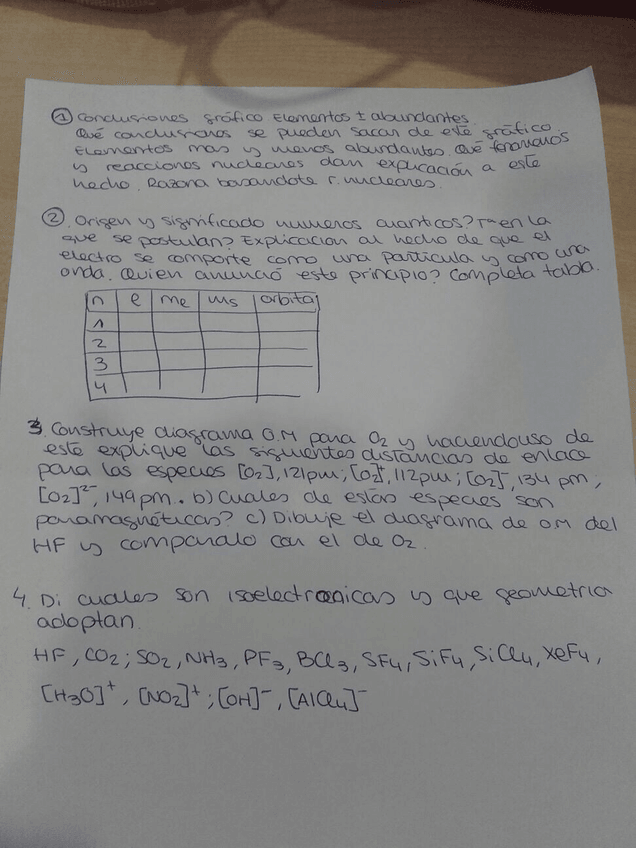 ① Conclusiones gráfico Elementos ± abundantes.
Qué conclusiones se pueden sacar de este gráfico.
Elementos mas y menos abundantes. Qué fenómenos
y reacciones nucleares dan explicación a este
hecho. Razona basandote r. nucleares.
② Origen y significado numeros cuanticos? Tª en la
que se postulan? Explicacion al hecho de que el
electro se comporte como una particula y como una
onda. Quien anunció este principio? Completa tabla.
n e me ms orbita
1
2
3
4
3. Construye diagrama O.M para O₂ y haciendo uso de
este explique las siguientes distancias de enlace
para las especies [O₂], 121pm; [O₂]⁺, 112pm; [O₂]⁻, 134 pm;
[O₂]²⁻, 149 pm. b) Cuales de estas especies son
paramagnéticas? c) Dibuje el diagrama de O.M del
HF y comparalo con el de O₂.
4. Di cuales son isoelectronicas y que geometria
adoptan.
HF, CO₂; SO₂, NH₃, PF₃, BCl₃, SF₄, SiF₄, SiCl₄, XeF₄,
[H₃O]⁺, [NO₂]⁺; [OH]⁻, [AlCl₄]⁻